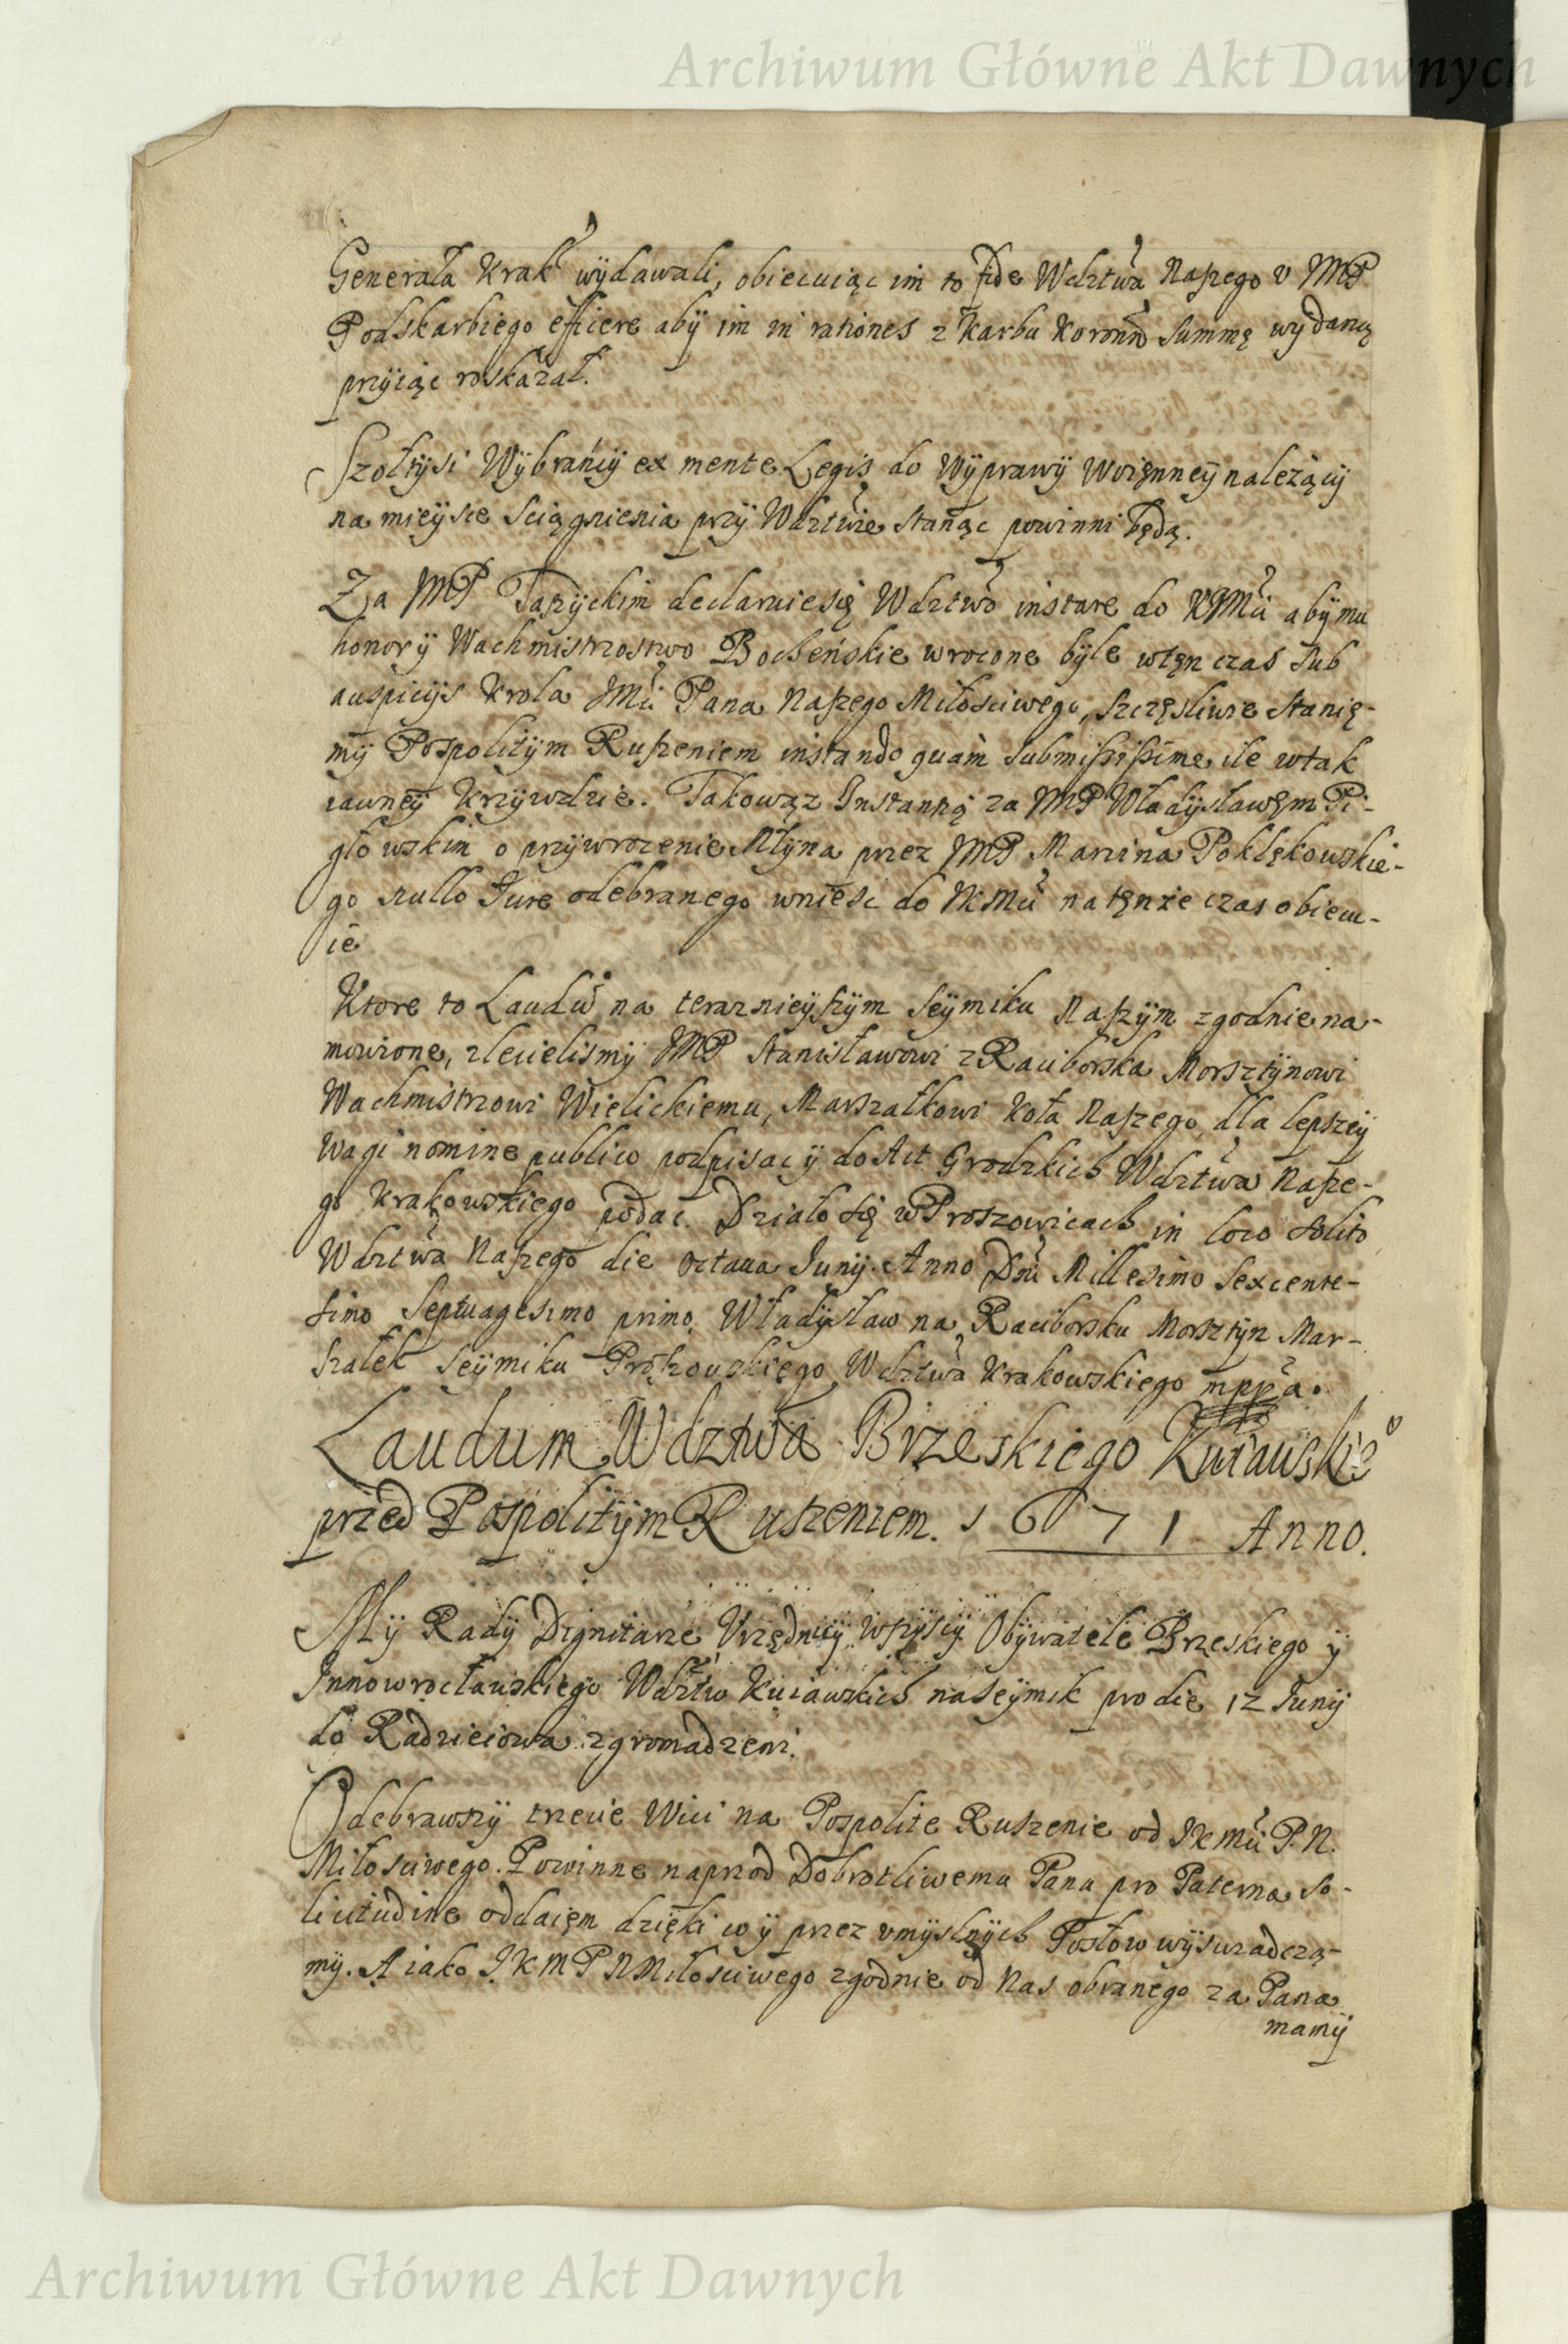 Archiwum Główne Akt Dawnych
Generała Krak wydawali, obiecuiąc im to fide Wdztwa Naszego v JMP
Podskarbiego efficere aby im in rationes z Karbu Koronn Summę wydaną
przyiąc roskazał.
Szołtysi Wybrańcy ex mente Legis do Wyprawy Woięnney nalezący
na mieysce sciągnienia przy Wdztwie stanąc powinni będą.
Za JMP Taszyckim declaruie się Wdztwo instare do KJMci aby mu
honor y Wachmistrostwo Bocheńskie wrocone było wtęn czas sub
auspicijs Krola JMci Pana Naszego Miłosciwego, szczęsliwie stanię-
my Pospolitym Ruszeniem instando quam submississime, ile wtak
iawney Krzywdzie. Takowąz Instantią za JMP Władysławęm Pi-
głowskim o przywrocenie Młyna przez JMP Marcina Poklękowskie-
go nullo Iure odebranego wniesc do JKMci na tęnze czas obiecu-
ie
Ktore to Laudu na teraznieyszym Seymiku Naszym zgodnie na-
mowione, zlecielismy JMP Stanisławowi z Raciborska Morsztynowi
Wachmistrzowi Wielickiemu, Marszałkowi Koła Naszego dla lepszey
wagi nomine publico podpisac y do Act Grodzkich Wdztwa Nasze-
go Krakowskiego podac. Działo się w Proszowicach in loco solito
Wdztwa Naszego die octaua Iunij Anno Dni Millesimo Sexcente-
simo Septuagesimo primo. Władysław na Raciborsku Morsztyn Mar-
szałek Seymiku Proszowskiego Wdztwa Krakowskiego mppa.
Laudum Wdztwa Brzeskiego Kuiawskie
przed Pospolitym Ruszeniem. 1671 Anno.
My Rady Dignitarze Vrzędnicy wszyscy Obywatele Brzeskiego y
Innowrocławskiego Wdztw Kuiawskich na Seymik pro die 12 Iunij
do Radzieiowa zgromadzeni.
Odebrawszy trzecie Wici na Pospolite Ruszenie od JKMci P. N.
Miłosciwego. Powinne naprzod Dobrotliwemu Panu pro Paterna so-
licitudine oddaięm dzięki co y przez vmyslnych Posłow wyswiadczą-
my. A iako J K M P N Miłosciwego zgodnie od Nas obranego za Pana
mamy
Archiwum Główne Akt Dawnych